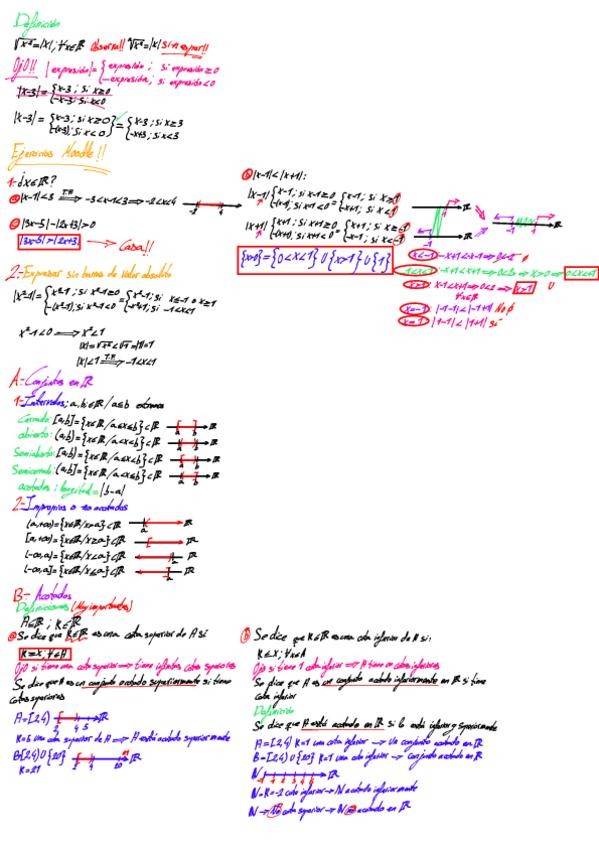 Definición
√x² = |x|, ∀x∈ℝ Observa!! ⁿ√xⁿ = |x| Si n es par!!
OJO!! |expresión| = { expresión ; si expresión ≥ 0
-expresión; si expresión < 0
|x-3| = { x-3 ; si x ≥ 0
-x-3; si x < 0
|x-3| = { x-3; si x-3 ≥ 0
= { x-3 ; si x ≥ 3
-x+3; si x < 3
Ejercicios Moodle!!
1- ¿x∈ℝ?
ⓐ |x-1|<3 ⟹ -3<x-1<3 ⟹ -2<x<4
ⓑ |3x-5|-|2x+3|>0
|3x-5|>|2x+3| → Casa!!
ⓑ |x-1|<|x+1|:
|x-1| { x-1; si x-1≥0
-(x-1); si x-1<0
|x+1| { x+1; si x+1≥0
-(x+1); si x+1<0
{0<x<1} ∪ {x>1} ∪ {1}
x<-1
-1<x<1 -x+1<x+1 ⟹ 0<2x ⟹ x>0 ⟹ 0<x<1
x>1 x-1<x+1 ⟹ 0<2 ⟹ x>1
∀x∈ℝ
x=-1 |-1-1|<|-1+1| No
x=1 |1-1|<|1+1| sí
2- Expresar sin barras de valor absoluto
|x²-1| = { x²-1; si x²-1≥0
-(x²-1); si x²-1<0
= { x²-1; si x≤-1 o x≥1
-x²+1; si -1<x<1
x²-1<0 ⟹ x²<1
|x|=√x²<√1=|1|=1
|x|<1 ⟹ -1<x<1
A- Conjuntos en ℝ
1- Intervalos; a,b∈ℝ / a≤b extremos
Cerrado: [a,b]={x∈ℝ/a≤x≤b}⊂ℝ
abierto: (a,b)={x∈ℝ/a<x<b}⊂ℝ
Semiabierto: [a,b)={x∈ℝ/a≤x<b}⊂ℝ
Semicerrado: (a,b]={x∈ℝ/a<x≤b}⊂ℝ
acotados: longitud=|b-a|
2- Impropios o no acotados
(a,+∞)={x∈ℝ/x>a}⊂ℝ
[a,+∞)={x∈ℝ/x≥a}⊂ℝ
(-∞,a)={x∈ℝ/x<a}⊂ℝ
(-∞,a]={x∈ℝ/x≤a}⊂ℝ
B- Acotados
Definiciones (Muy importantes)
A⊂ℝ; K∈ℝ
ⓐ Se dice que K∈ℝ es una cota superior de A si
K≥x, ∀x∈A
Ojo si tiene una cota superior ⟹ tiene infinitas cotas superiores
Se dice que A es un conjunto acotado superiormente si tiene
cotas superiores
A=[2,4)
K=5 una cota superior de A ⟹ A está acotado superiormente
B=[2,4)∪{20}
K=21
ⓑ Se dice que K∈ℝ es una cota inferior de A si:
K≤x, ∀x∈A
Ojo si tiene 1 cota inferior ⟹ A tiene ∞ cotas inferiores
Se dice que A es un conjunto acotado inferiormente en ℝ si tiene
cota inferior
Definición
Se dice que A está acotado en ℝ si lo está inferior y superiormente
A=[2,4) K=1 una cota inferior → Un conjunto acotado en ℝ
B=[2,4)∪{20} K=1 una cota inferior → Conjunto acotado en ℝ
ℕ
ℕ→K=-2 cota inferior → ℕ acotado inferiormente
ℕ → No cota superior → ℕ no acotado en ℝ